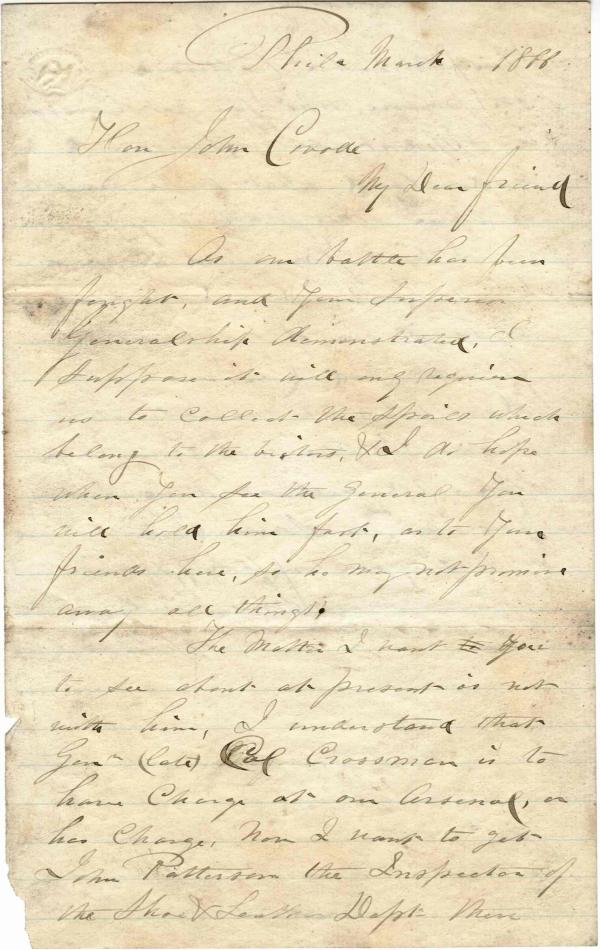 Phila March 1866
Hon John Covode
My Dear friend
As our battle has been
fought, and your Superior
Generalship demonstrated, I
Suppose it will only require
us to collect the spoils which
belong to the victors, & I do hope
when you see the General you
will hold him fast, as to your
friends here, so he may not promise
away all things.
The Matter I want to you
to see about at present is not
with him, I understand that
Genl (late) Col Crossman is to
have Charge at our Arsenal, or
has Charge, Now I want to get
John Patterson the Inspector of
the Shoe & Leather Dept there